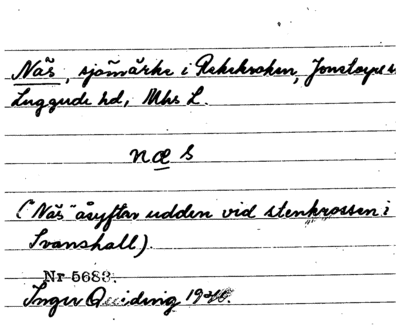 Näs, sjömärke i Rekekroken, Jonstorps s
Luggude hd, Mhs L.
næs
("Näs" åsyftar udden vid stenkrossen i
Svanshall).
Nr 5683.
Inger Quiding 1940.